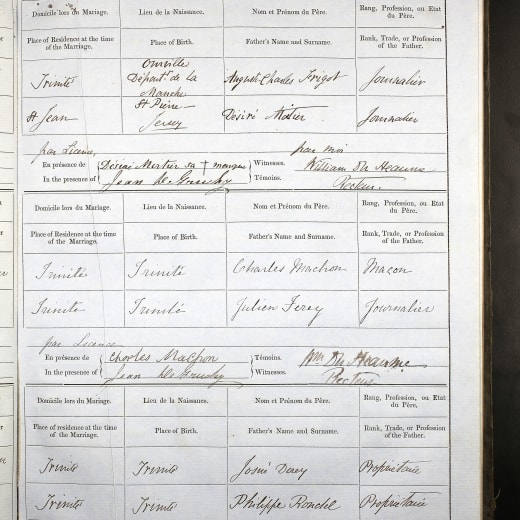 Domicile lors du Mariage. Lieu de la Naissance. Nom et Prénom du Père. Rang, Profession, ou Etat du Père.
Place of Residence at the time of the Marriage. Place of Birth. Father's Name and Surname. Rank, Trade, or Profession of the Father.
Trinité Départ de la Manche Auguste Charles Frigot Journalier
St Jean St Pierre Jersey Désiré Journalier
par Licence, par moi
En présence de Désiré sa + marque Witnesses. William Du Heaume
In the presence of Jean De Gruchy Témoins. Recteur.
Domicile lors du Mariage. Lieu de la Naissance. Nom et Prénom du Père. Rang, Profession, ou Etat du Père.
Place of Residence at the time of the Marriage. Place of Birth. Father's Name and Surname. Rank, Trade, or Profession of the Father.
Trinité Trinité Charles Machon Macon
Trinité Trinité Julien Ferey Journalier
par Licence
En présence de Charles Machon Témoins. Wm Du Heaume
In the presence of Jean De Gruchy Witnesses. Recteur
Domicile lors du Mariage. Lieu de la Naissance. Nom et Prénom du Père. Rang, Profession, ou Etat du Père.
Place of residence at the time of the Marriage. Place of Birth. Father's Name and Surname. Rank, Trade, or Profession of the Father.
Trinité Trinité Josué Propriétaire
Trinité Trinité Philippe Rondel Propriétaire